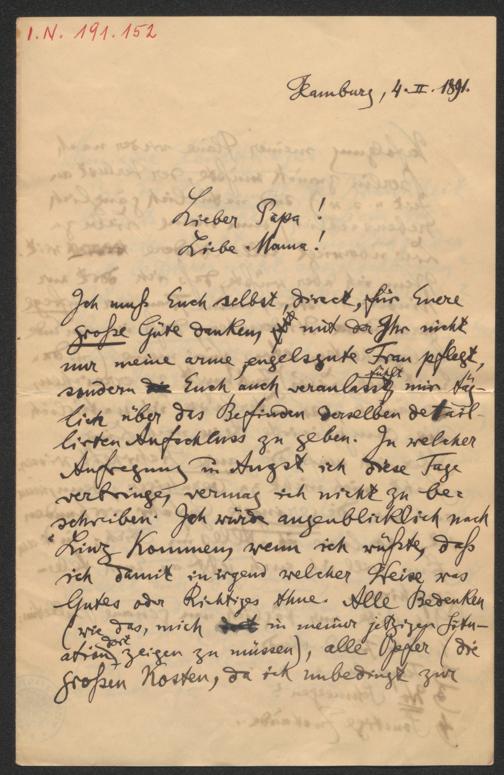 I.N. 191.152
Hamburg, 4.II.1891.
Lieber Papa!
Liebe Mama!
Ich muß Euch selbst, direct, für Euere
große Güte danken, mit der Ihr nicht
nur meine arme engelsgute Frau pflegt,
sondern Euch auch veranlasst fühlt mir täg-
lich über das Befinden derselben detail-
lirten Aufschluss zu geben. In welcher
Aufregung u Angst ich diese Tage
verbringe, vermag ich nicht zu be-
schreiben. Ich würde augenblicklich nach
Linz kommen, wenn ich wüßte, daß
ich damit in irgend welcher Weise was
Gutes oder Richtiges thue. Alle Bedenken
(wie das, mich dort in meiner jetzigen Situ-
ation zeigen zu müssen), alle Opfer (die
großen Kosten, da ich unbedingt zur